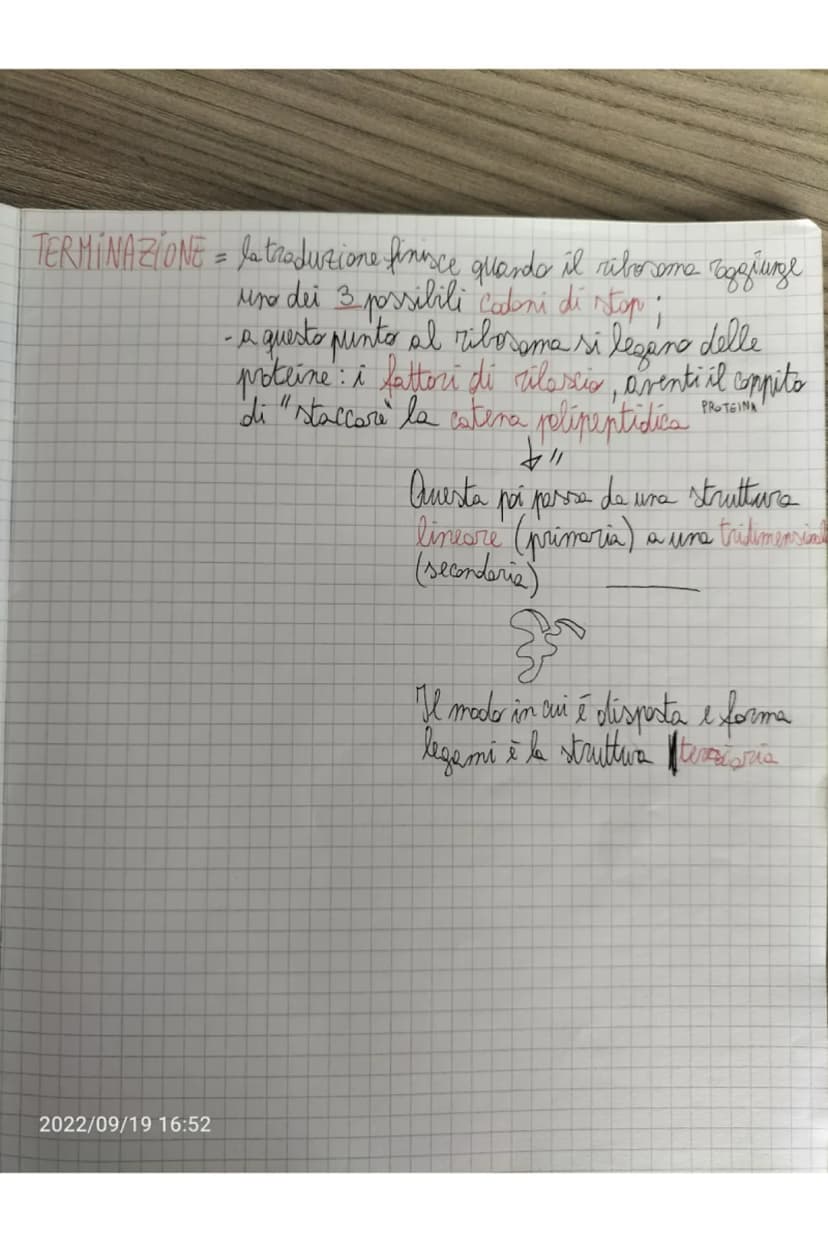 TERMINAZIONE = la traduzione finisce quando il ribosoma raggiunge
uno dei 3 possibili codoni di stop;
- a questo punto al ribosoma si legano delle
proteine: i fattori di rilascio, aventi il compito
di "staccare" la catena polipeptidica PROTEINA
↓ "
Questa poi passa da una struttura
lineare (primaria) a una tridimensional
(secondaria)
Il modo in cui è disposta e forma
legami è la struttura terziaria
2022/09/19 16:52